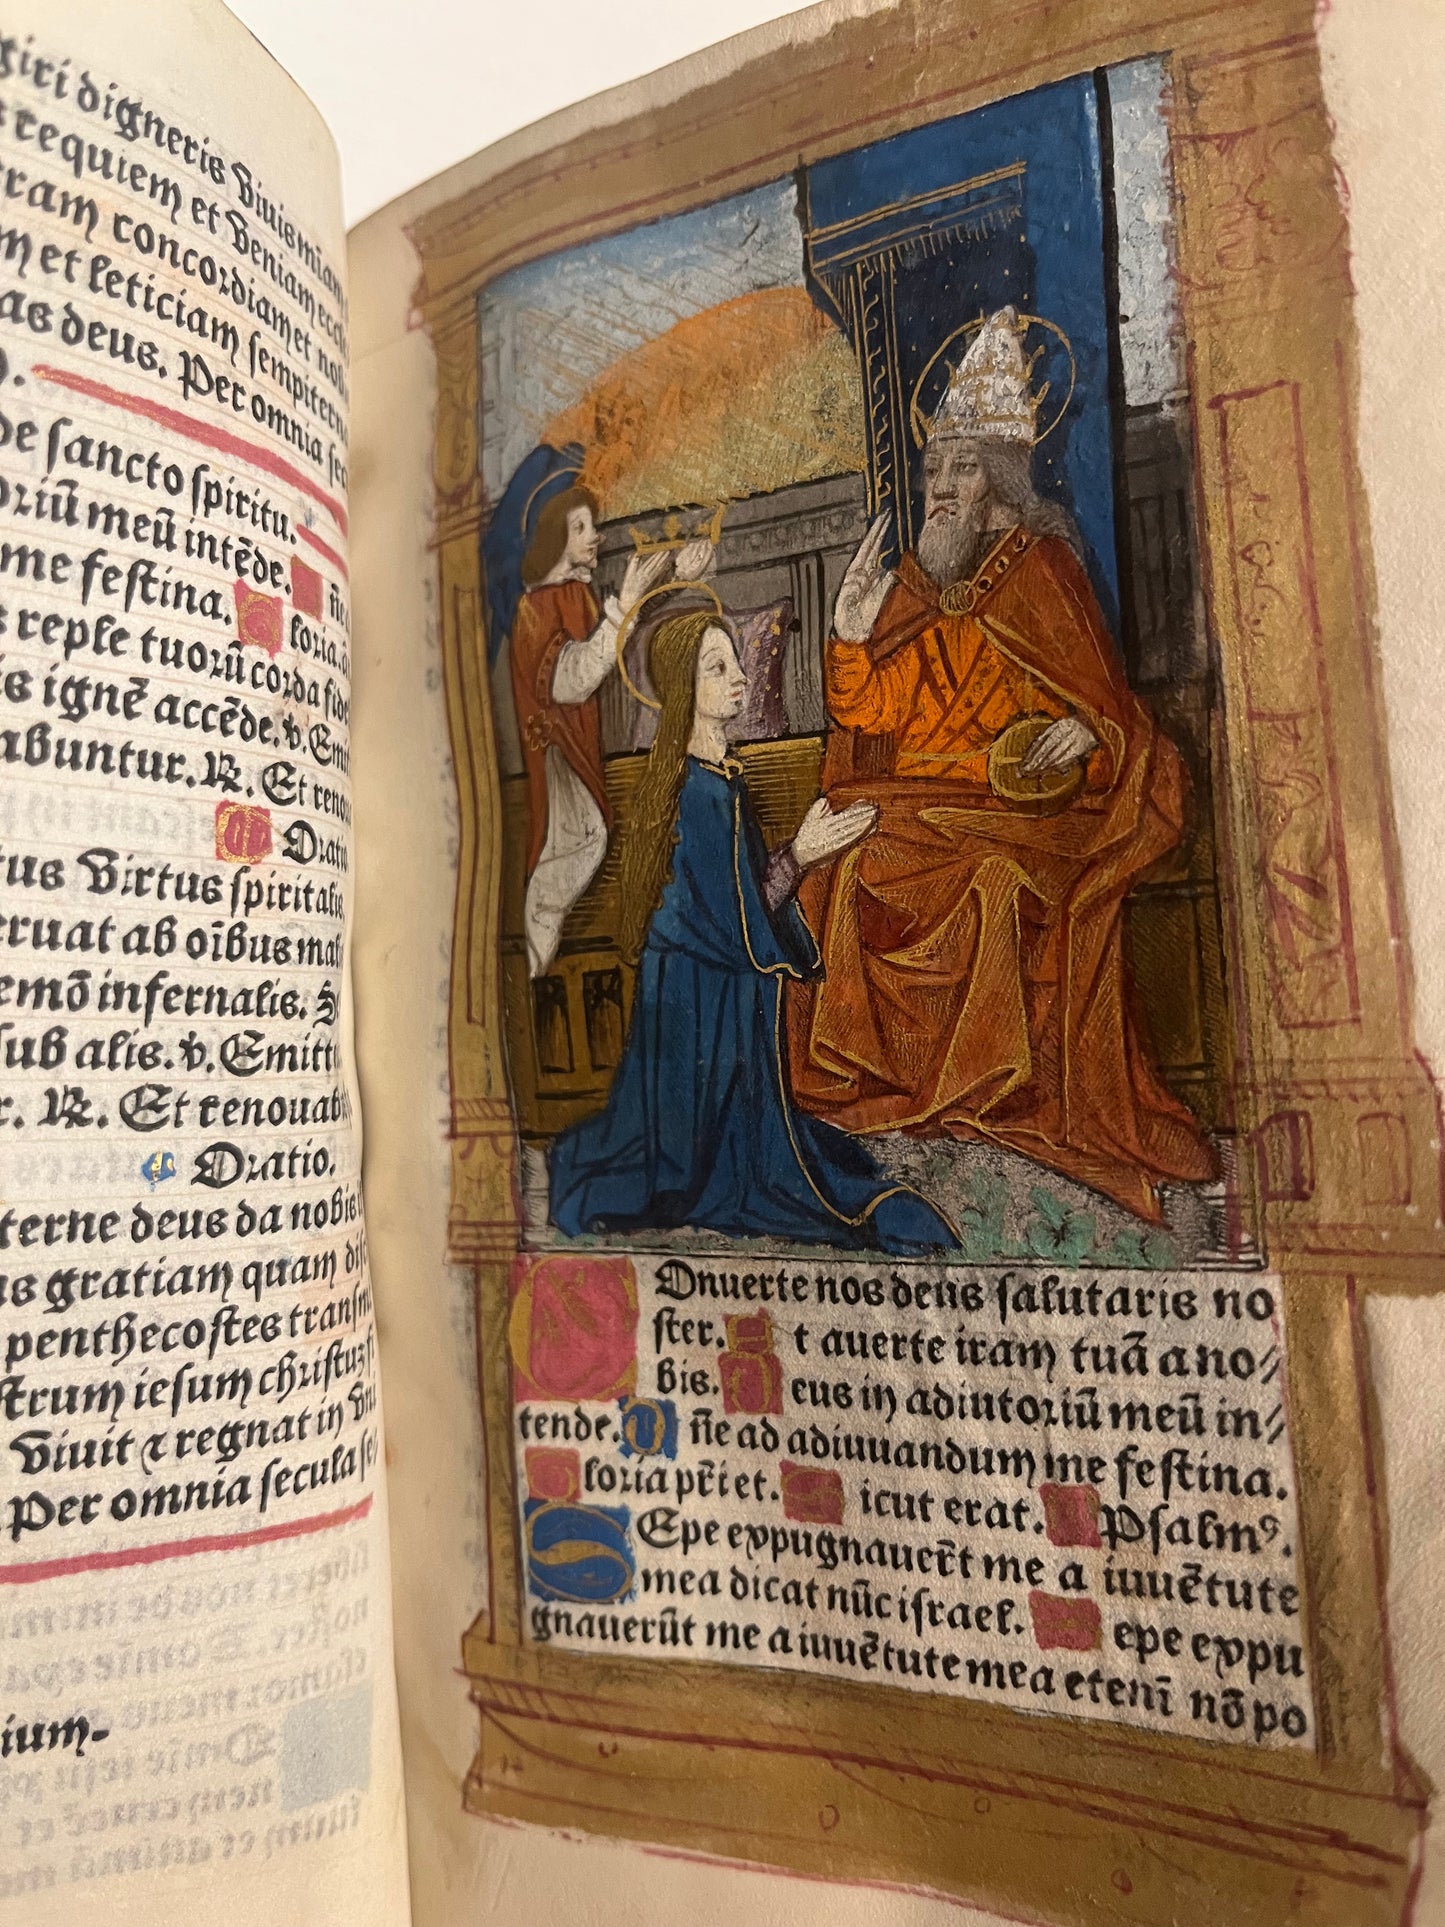 digneris Viuis
requiem et Veniam
ram concordiam et
m et leticiam sempitern
as deus. Per omnia sec
De sancto spiritu.
oriū meū intēde. ñe
me festina. Gloria.
reple tuorū corda fide
is ignē accēde. v. Emit
abuntur. R. Et reno
Oratio
tus Virtus spiritalis
eruat ab oībus mal
emō infernalis. S
sub alis. v. Emitt
r. R. Et renouab
Oratio.
terne deus da nobis
us gratiam quam disc
penthecostes transm
strum iesum christuz fi
Viuit ⁊ regnat in Vn
Per omnia secula se
ium.
COnuerte nos deus salutaris no
ster. Et auerte iram tuā a no⸗
bis. Deus in adiutoriū meū in⸗
tende. Dñe ad adiuuandum me festina.
Gloria pr̄i et. Sicut erat. Psalmꝰ.
SEpe expugnauerūt me a iuuētute
mea dicat nūc israel. Sepe expu
gnauerūt me a iuuētute mea etenī nō po